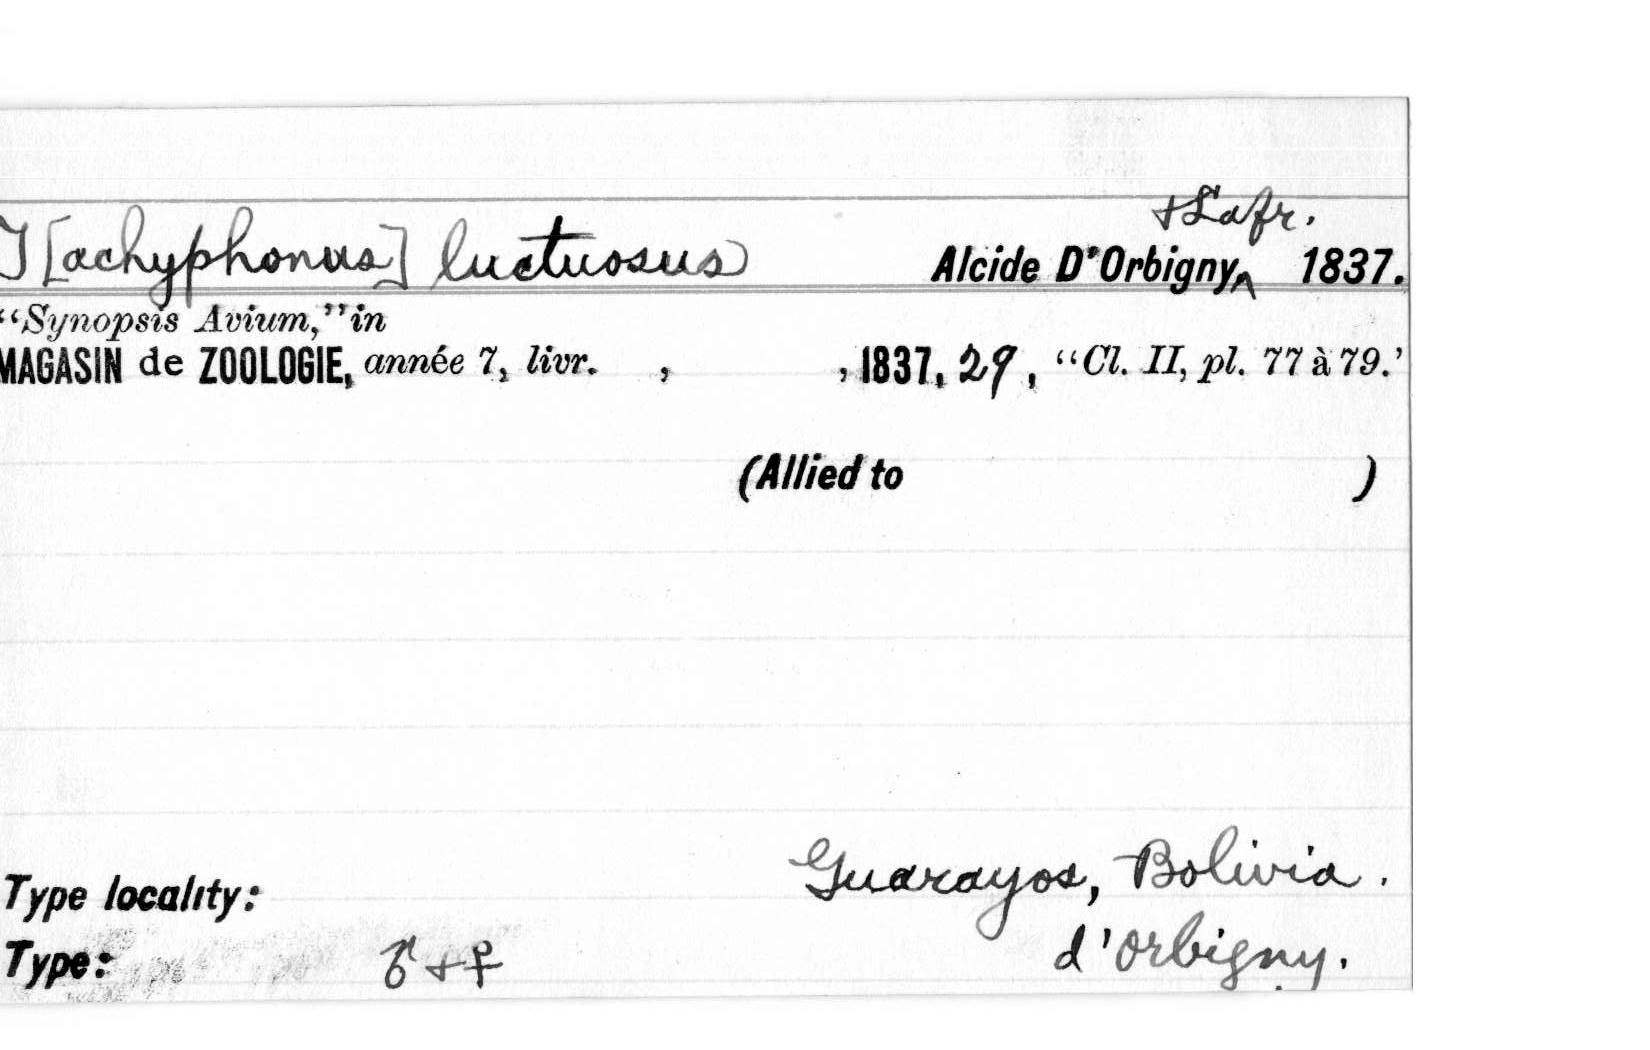 T[achyphonus] luctuosus Alcide D'Orbigny & Lafr. 1837.
"Synopsis Avium," in
MAGASIN de ZOOLOGIE, année 7, livr. , , 1837, 29, "Cl. II, pl. 77 à 79.'
(Allied to )
Type locality: Guarayos, Bolivia.
Type: ♂ + ♀ d'Orbigny.